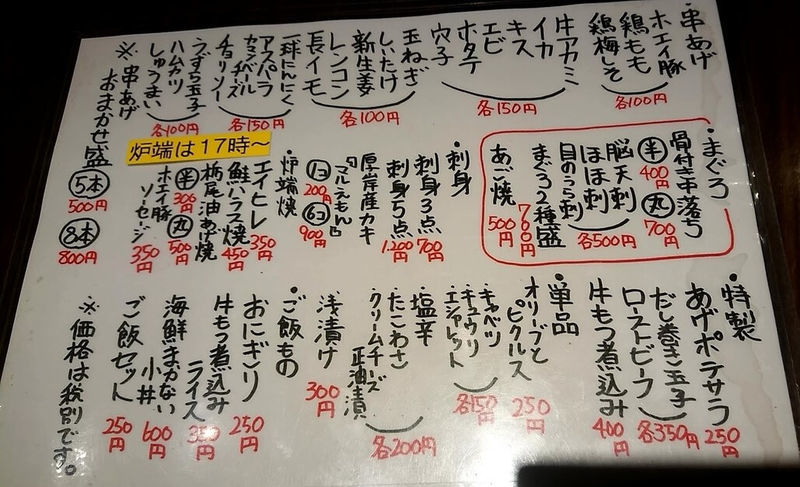 ・串あげ
ホエイ豚
鶏もも
鶏梅しそ
各100円
牛アカミ
イカ
キス
エビ
ホタテ
穴子
各150円
玉ねぎ
しいたけ
新生姜
レンコン
長イモ
各100円
一球にんにく
アスパラ
カマンベールチーズ
チョリソー
各150円
うずら玉子
ハムカツ
しゅうまい
各100円
※串あげ
おまかせ盛
5本
500円
8本
800円
・まぐろ
骨付き串落ち
半
400円
丸
700円
脳天刺
ほほ刺
目のうら刺
各500円
まぐろ2種盛
700円
あご焼
500円
・刺身
刺身3点
700円
刺身5点
1,200円
厚岸産カキ
「マルえもん」
1コ
200円
6コ
900円
・炉端焼
炉端は17時〜
エイヒレ
350円
鮭ハラス焼
450円
栃尾油あげ焼
半
300円
丸
500円
ホエイ豚
ソーセージ
350円
・特製
あげポテサラ
250円
だし巻き玉子
ローストビーフ
各350円
牛もつ煮込み
400円
・単品
オリーブと
ピクルス
250円
キャベツ
キュウリ
エシャレット
各150円
塩辛
たこわさ
クリームチーズ
正油漬
各200円
浅漬け
300円
・ご飯もの
おにぎり
250円
牛もつ煮込み
ライス
350円
海鮮まかない
小丼
600円
ご飯セット
250円
※価格は税別です。